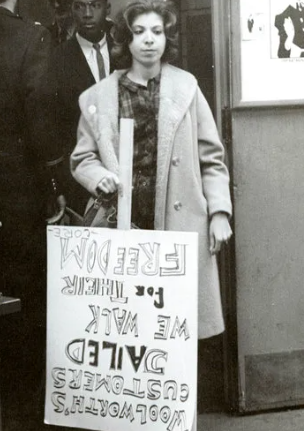 WOOLWORTH'S
CUSTOMERS
JAILED
WE WALK
FOR THEIR
FREEDOM
-CORE-